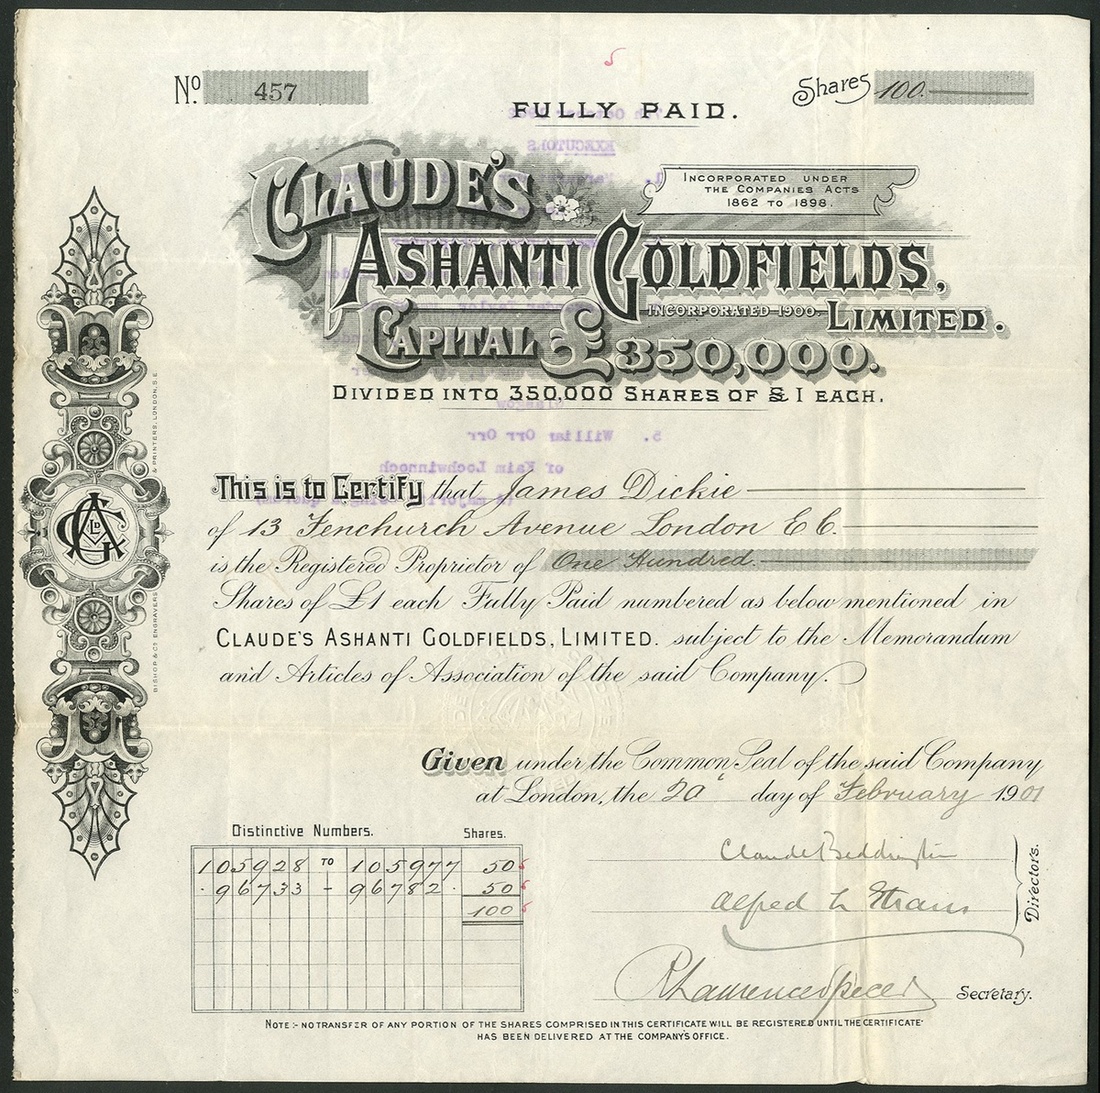 No. 457
Shares 100.
FULLY PAID.
CLAUDE'S
INCORPORATED UNDER
THE COMPANIES ACTS
1862 TO 1898.
ASHANTI GOLDFIELDS,
INCORPORATED 1900. LIMITED.
CAPITAL £350,000.
DIVIDED INTO 350,000 SHARES OF £1 EACH.
EXECUTORS
5. William Orr Orr
of Kaim Lochwinnoch
This is to Certify that James Dickie
of 13 Fenchurch Avenue London E C.
is the Registered Proprietor of One Hundred.
Shares of £1 each Fully Paid numbered as below mentioned in
CLAUDE'S ASHANTI GOLDFIELDS, LIMITED. subject to the Memorandum
and Articles of Association of the said Company.
Given under the Common Seal of the said Company
at London, the 20 day of February 1901
Distinctive Numbers. Shares.
105928 TO 105977 50
96733 - 96782. 50
100
Claude Beddington
Alfred L Straus
Directors.
Secretary.
NOTE:- NO TRANSFER OF ANY PORTION OF THE SHARES COMPRISED IN THIS CERTIFICATE WILL BE REGISTERED UNTIL THE CERTIFICATE
HAS BEEN DELIVERED AT THE COMPANY'S OFFICE.
BISHOP & Co ENGRAVERS & PRINTERS, LONDON, S.E.